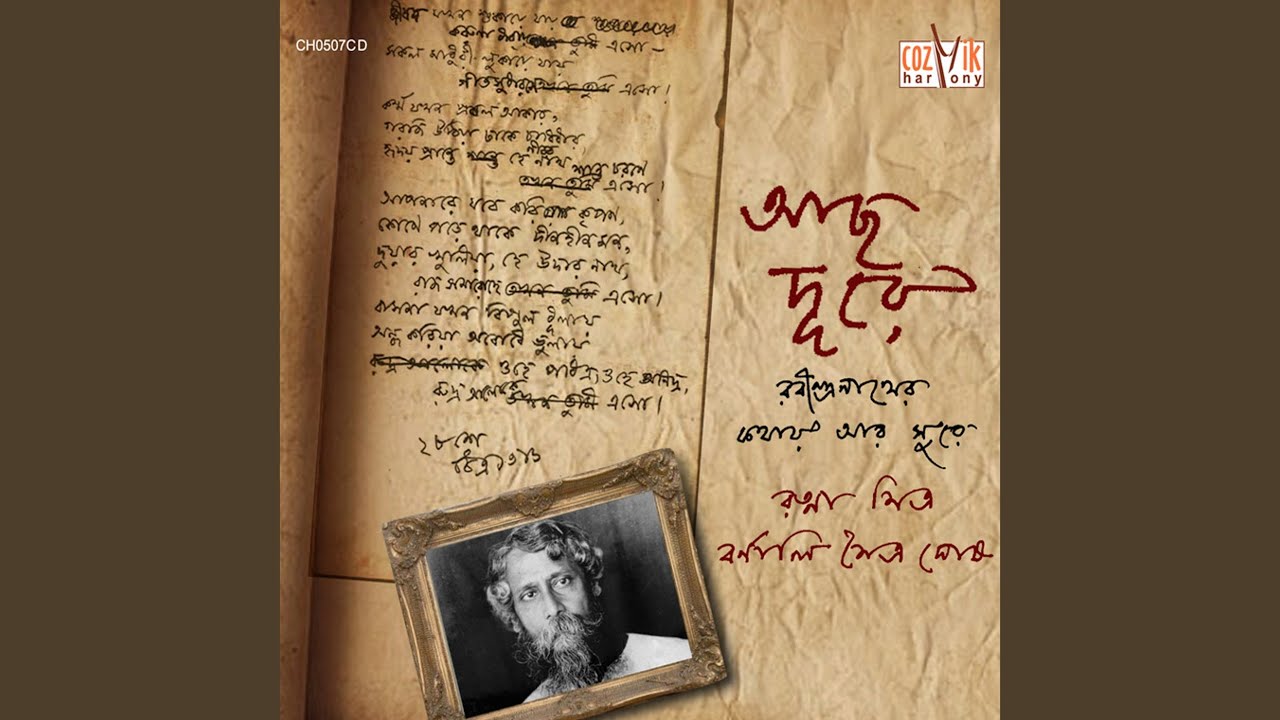 CH0507CD
COZMIK
harmony
জীবন যখন শুকায়ে যায়
করুণা ধারায় তুমি এসো-
সকল মাধুরী লুকায়ে যায়
গীতসুধারসে তখন তুমি এসো।
কর্ম্ম যখন প্রবল আকার,
গরজি উঠিয়া ঢাকে চারিধার,
হৃদয় প্রান্তে হে নীরব নাথ শান্ত চরণে
তখন তুমি এসো।
আপনারে যবে করিয়া কৃপণ,
কোণে পড়ে থাকে দীনহীন মন,
দুয়ার খুলিয়া, হে উদার নাথ,
রাজ সমারোহে তখন তুমি এসো।
বাসনা যখন বিপুল ধূলায়
অন্ধ করিয়া অবোধে ভুলায়
ওহে পবিত্র, ওহে অনিদ্র,
রুদ্র আলোকে তখন তুমি এসো।
২৮শে
চৈত্র ১৩১৬
আছ
দূরে
রবীন্দ্রনাথের
কথায় আর সুরে
রত্না মিত্র
বর্ণালি মৈত্র ঘোষ